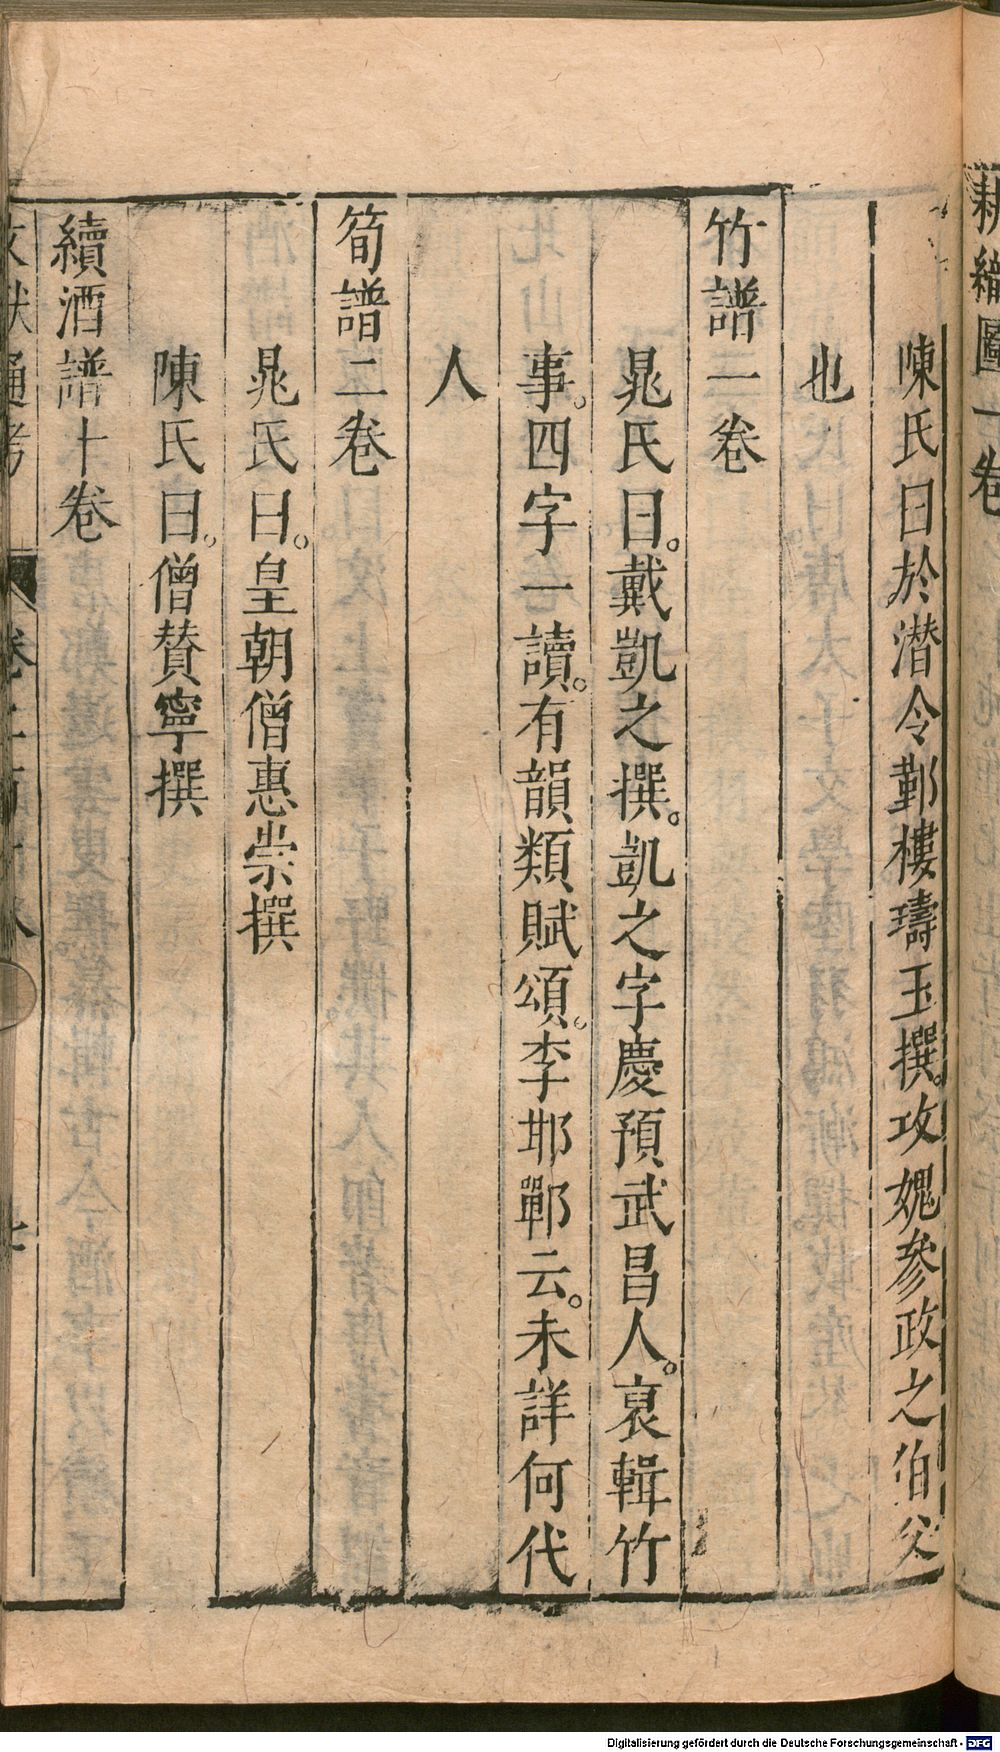 耕織圖一卷
陳氏曰於潛令鄞樓璹玉撰。攻媿參政之伯父
也
竹譜三卷
晁氏曰。戴凱之撰。凱之字慶預武昌人。裒輯竹
事。四字一讀。有韻類賦頌。李邯鄲云。未詳何代
人
筍譜二卷
晁氏曰。皇朝僧惠崇撰
陳氏曰。僧贊寧撰
續酒譜十卷
文獻通考 卷二百十八 七
Digitalisierung gefördert durch die Deutsche Forschungsgemeinschaft - DFG